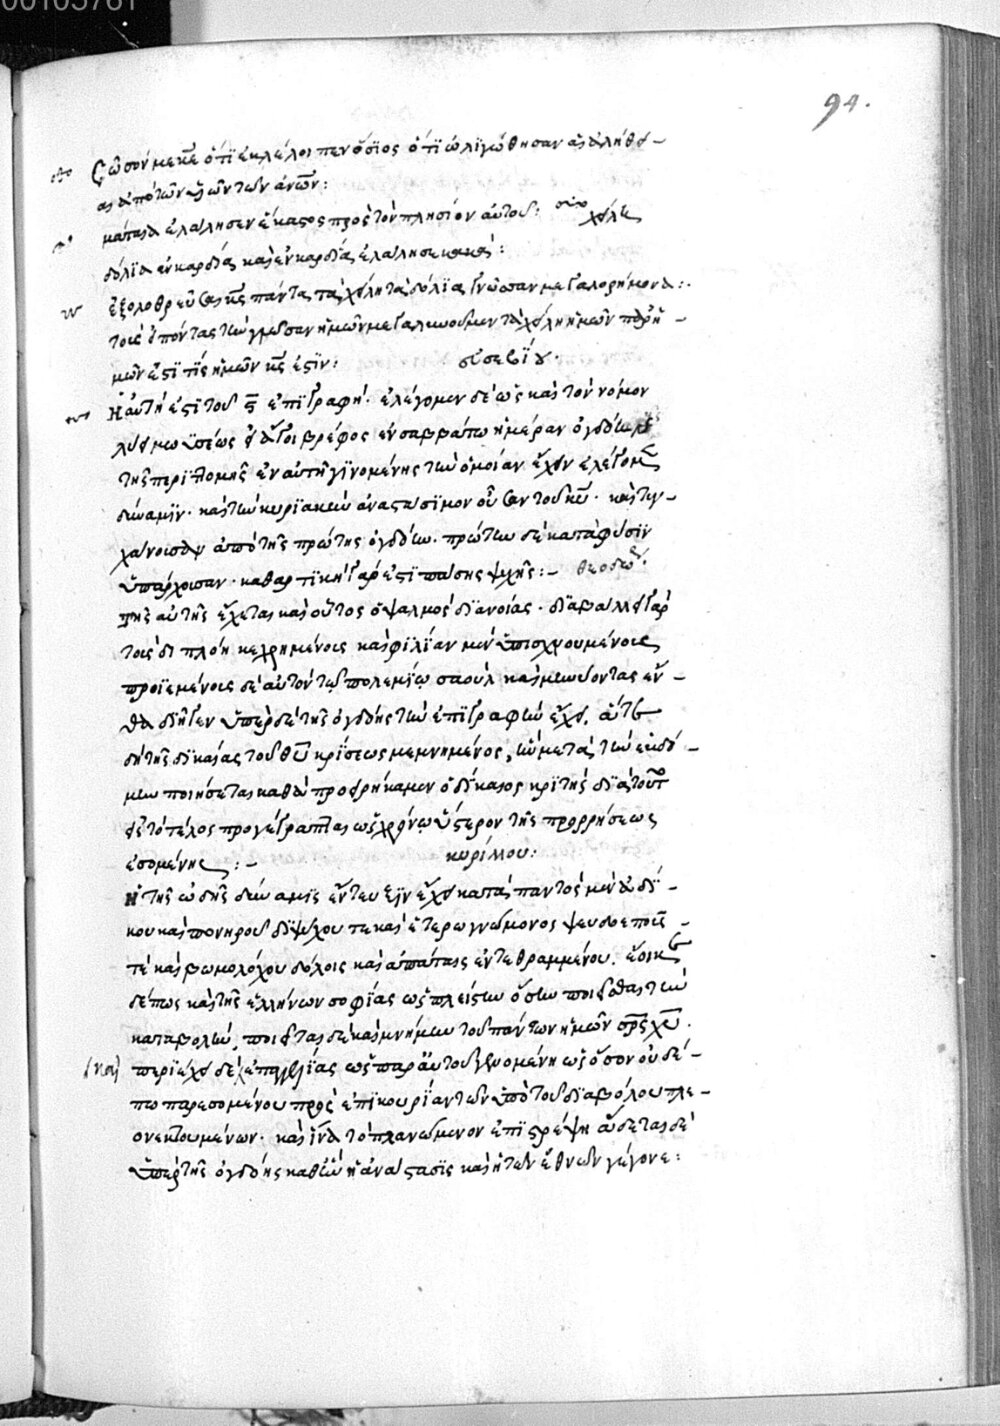 00103781
94.
Σῶσόν με κε ὅτι ἐκλέλοιπεν ὅσιος ὅτι ὠλιγώθησαν αἱ ἀλήθει-
αι ἀπὸ τῶν υἱῶν τῶν ἀνων:
μάταια ἐλάλησεν ἕκαστος πρὸς τὸν πλησίον αὐτοῦ: χείλη
δόλια ἐν καρδίᾳ καὶ ἐν καρδίᾳ ἐλάλησε κακά:
ἐξολοθρεύσαι κς πάντα τὰ χείλη τὰ δόλια γλῶσσαν μεγαλορήμονα:
τοὺς εἰπόντας τὴν γλῶσσαν ἡμῶν μεγαλυνοῦμεν τὰ χείλη ἡμῶν παρ' ἡ-
μῶν ἐστι τίς ἡμῶν κς ἐστιν: εὐσεβίου.
Ἡ αὐτή ἐστι τοῦ ϛ ἐπιγραφή. ἐλέγομεν δὲ ὡς κατὰ τὸν νόμον
τῆς περιτομῆς ἐν αὐτῇ γινομένης τὴν ὁμοίαν ἔχειν ἐλέγομεν
δύναμιν. καὶ τὴν κυριακὴν ἀναστάσιμον οὖσαν τοῦ κυ. καὶ τυγ-
χάνουσαν ἀπὸ τῆς πρώτης ὀγδόην. πρώτην δὲ κατὰ φύσιν
ὑπάρχουσαν. καθαρτικὴ γάρ ἐστι πάσης ψυχῆς:- θεοδω
τῆς αὐτῆς ἔχεται καὶ οὗτος ὁ ψαλμὸς διανοίας. διαβάλλει γὰρ
τοὺς διπλόῃ κεχρημένους καὶ φιλίαν μὲν ὑπισχνουμένους
προϊεμένους δὲ αὐτὸν τῷ πολεμίῳ σαοὺλ καὶ μηνύοντας ἔν-
θα διῆγεν ὑπὲρ δὲ τῆς ὀγδόης τὴν ἐπιγραφὴν ἔχει. ἅτε
δὴ τῆς δικαίας τοῦ θυ κρίσεως μεμνημένος, ἣν μετὰ τὴν ἑβδό-
μην ποιήσεται καθὰ προειρήκαμεν ὁ δίκαιος κριτής διὰ τοῦτο
εἰς τὸ τέλος προγέγραπται ὡς χρόνῳ ὕστερον τῆς προρρήσεως
ἐσομένης:- κυρίλλου:
Ἡ τῆς ᾠδῆς δύναμις ἔντευξιν ἔχει κατὰ παντὸς μὲν ἀδί-
κου καὶ πονηροῦ διψύχου τε καὶ ἑτερογνώμονος ψευδοεποῦς
τε καὶ βωμολόχου δόλοις καὶ ἀπάταις ἐντεθραμμένου. ἔοικε
δέ πως καὶ τῆς ἑλλήνων σοφίας ὡς πλείστην ὅσην ποιεῖσθαι τὴν
καταβολήν, ποιεῖται δὲ καὶ μνήμην τοῦ πάντων ἡμῶν σρς χυ.
περιέχει δὲ ἐπαγγελίας ὡς παρ' αὐτοῦ γενομένη ὡς ὅσον οὐδέ-
πω παρεσομένου πρὸς ἐπικουρίαν τῶν ὑπὸ τοῦ διαβόλου πλε-
ονεκτουμένων. καὶ ἵνα τὸ πλανώμενον ἐπιστρέψῃ ᾄδεται δὲ
ὑπὲρ τῆς ὀγδόης καθ' ἣν ἡ ἀνάστασις καὶ ἡ τῶν ἐθνῶν γέγονε: